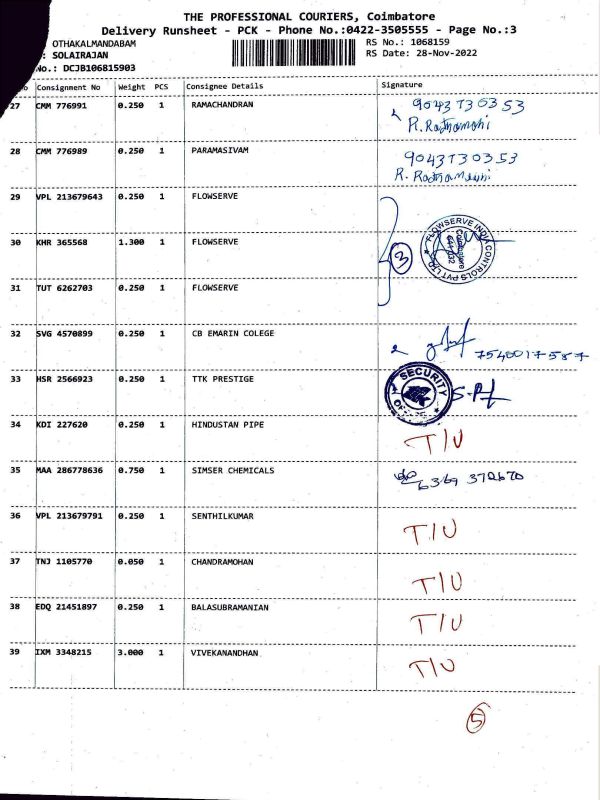 THE PROFESSIONAL COURIERS, Coimbatore
Delivery Runsheet - PCK - Phone No.:0422-3505555 - Page No.:3
OTHAKALMANDABAM RS No.: 1068159
: SOLAIRAJAN RS Date: 28-Nov-2022
No.: DCJB106815903
No Consignment No Weight PCS Consignee Details Signature
27 CMM 776991 0.250 1 RAMACHANDRAN 9043730353
28 CMM 776989 0.250 1 PARAMASIVAM 9043730353
29 VPL 213679643 0.250 1 FLOWSERVE
30 KHR 365568 1.300 1 FLOWSERVE 3 FLOWSERVE INDIA CONTROLS PVT LTD
31 TUT 6262703 0.250 1 FLOWSERVE
32 SVG 4570899 0.250 1 CB EMARIN COLEGE 7540017587
33 HSR 2566923 0.250 1 TTK PRESTIGE SECURITY
34 KDI 227620 0.250 1 HINDUSTAN PIPE T/U
35 MAA 286778636 0.750 1 SIMSER CHEMICALS 6369 372670
36 VPL 213679791 0.250 1 SENTHILKUMAR T/U
37 TNJ 1105770 0.050 1 CHANDRAMOHAN T/U
38 EDQ 21451897 0.250 1 BALASUBRAMANIAN T/U
39 IXM 3348215 3.000 1 VIVEKANANDHAN T/U
5